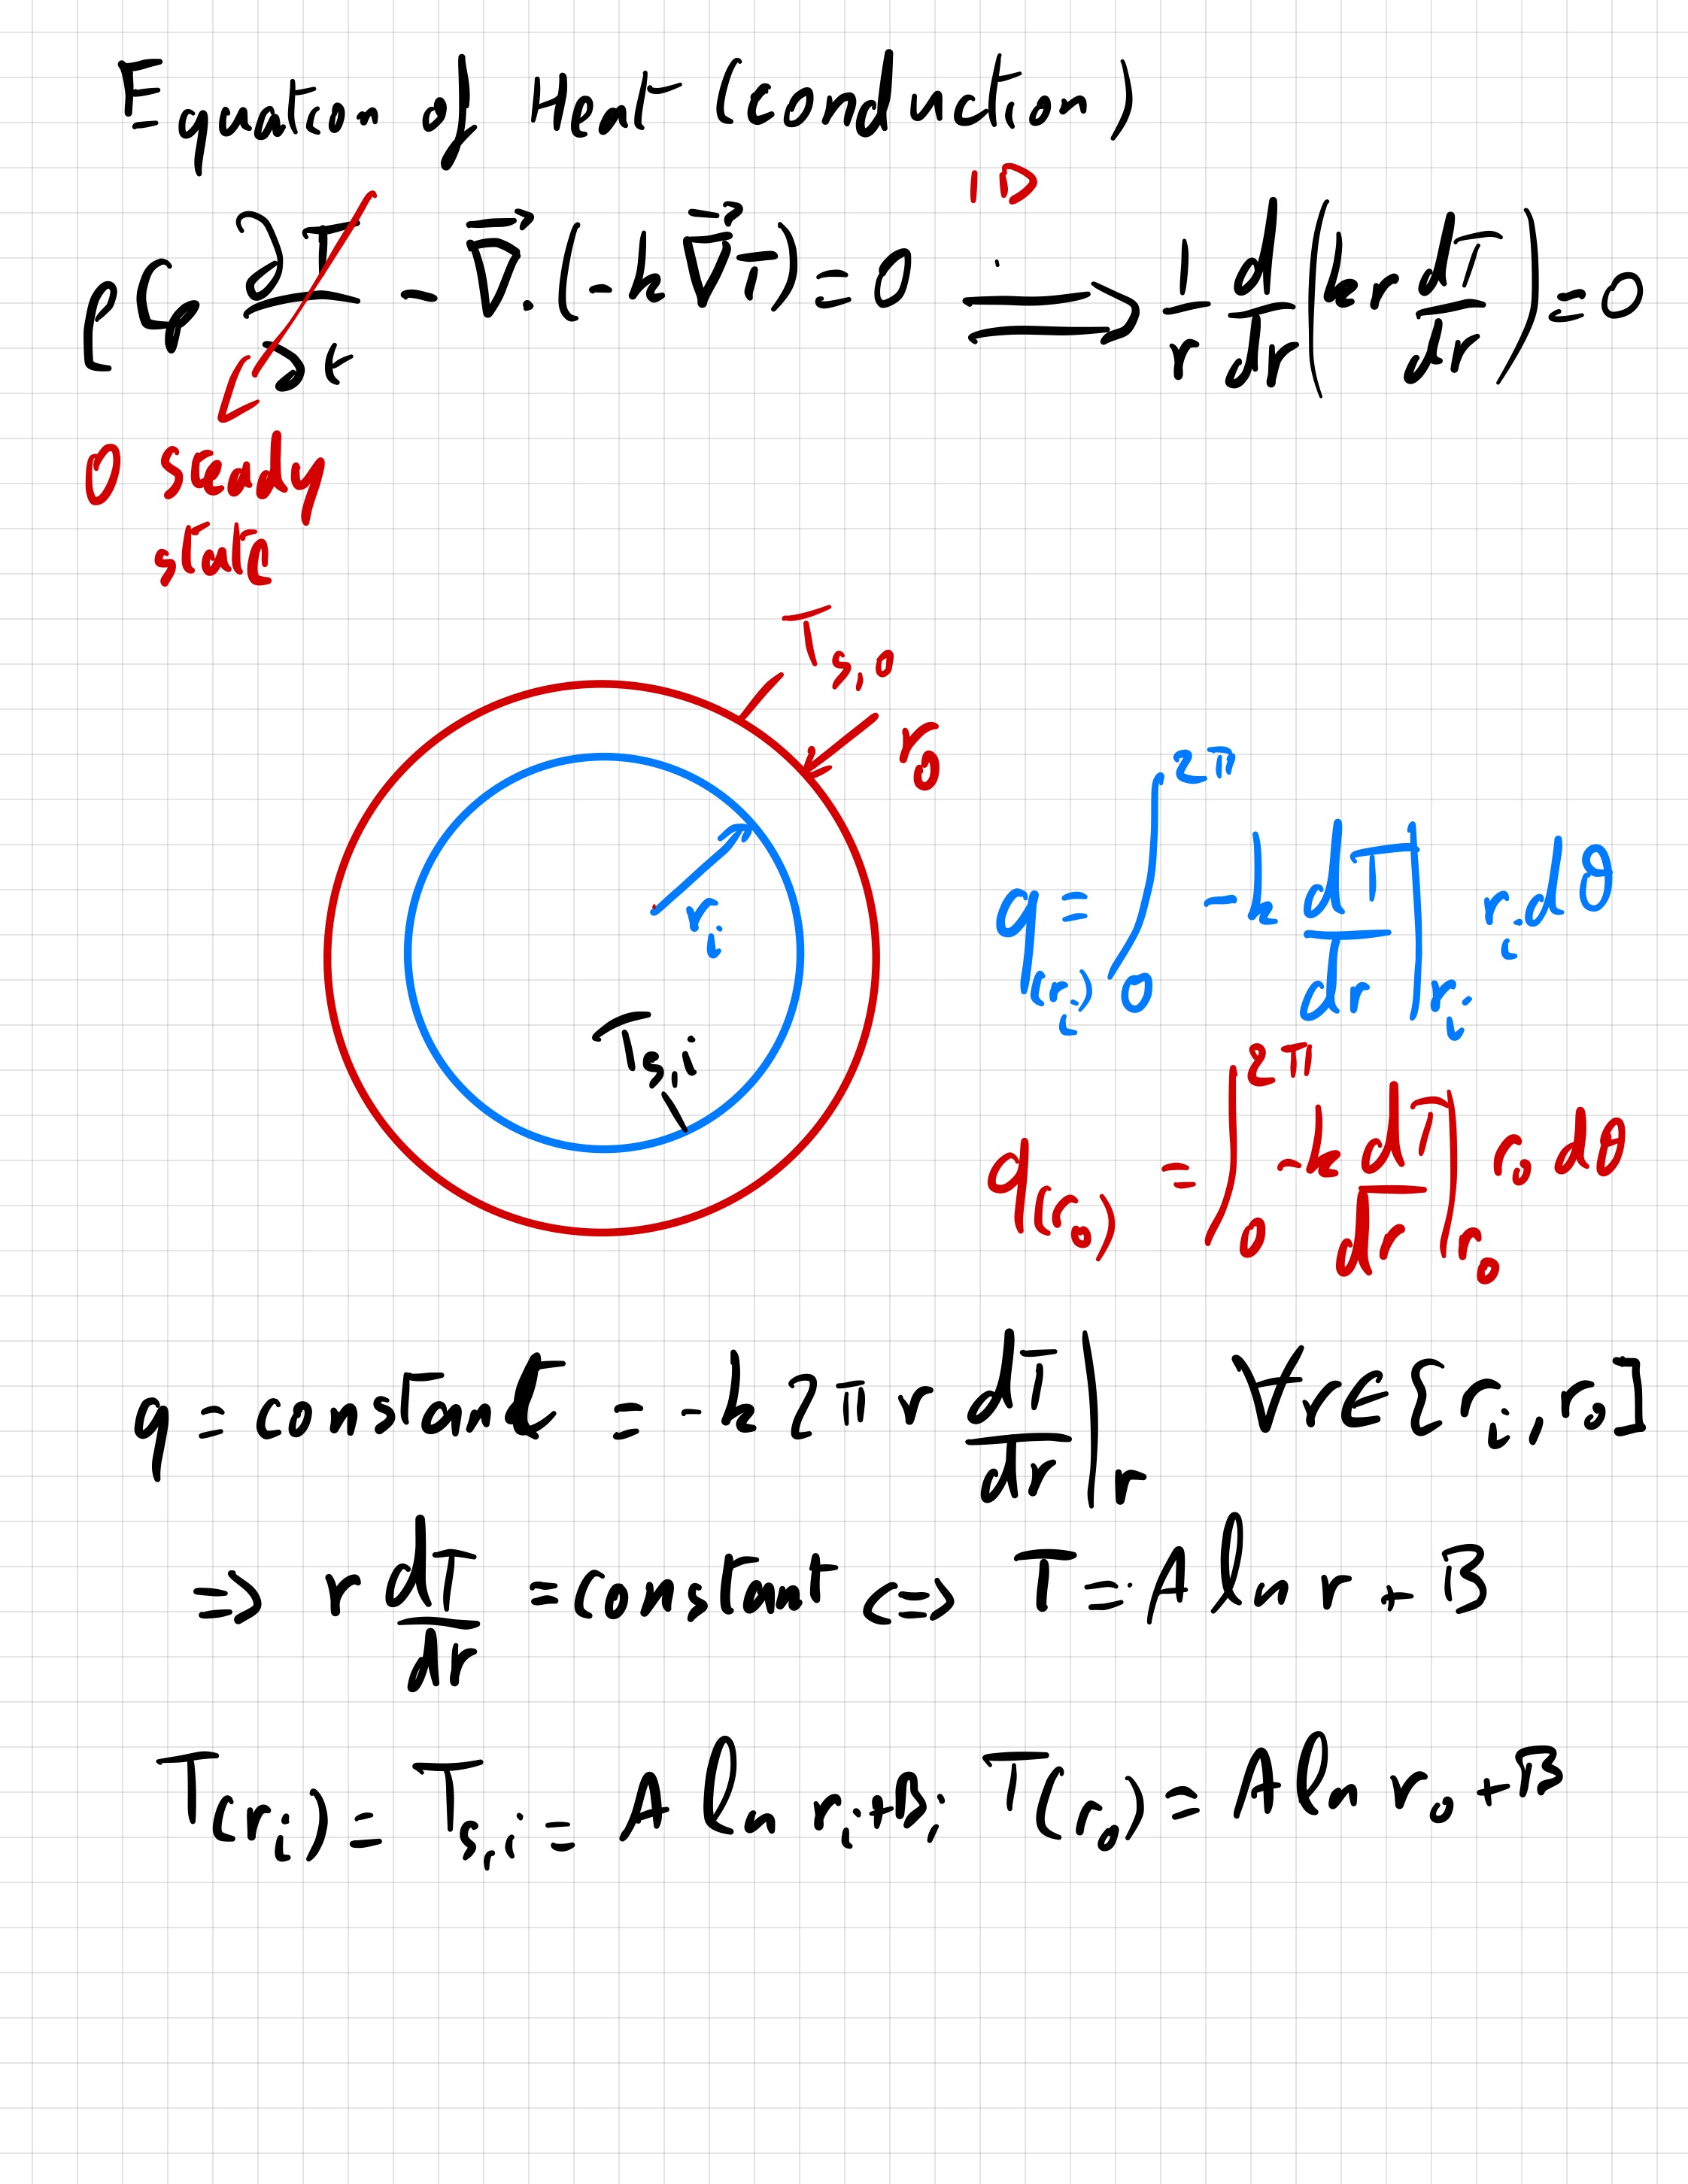 Equation of Heat (conduction)
1D
ρCp ∂T/∂t - ∇⃗.(-k ∇⃗T) = 0 ⟹ 1/r d/dr (k r dT/dr) = 0
0 steady
state
T_s,o
r_o
r_i
T_s,i
q_(r_i) = ∫_0^2π -k dT/dr |_r_i r_i dθ
q_(r_o) = ∫_0^2π -k dT/dr |_r_o r_o dθ
q = constant = -k 2π r dT/dr |_r ∀r∈[r_i, r_o]
⇒ r dT/dr = constant ⇔ T = A ln r + B
T_(r_i) = T_s,i = A ln r_i + B; T_(r_o) = A ln r_o + B